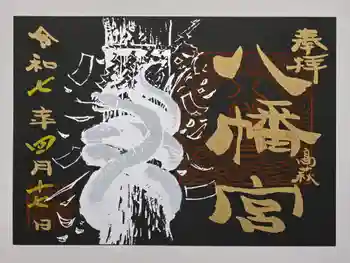 奉拝
八幡宮
高萩
令和七年四月十七日